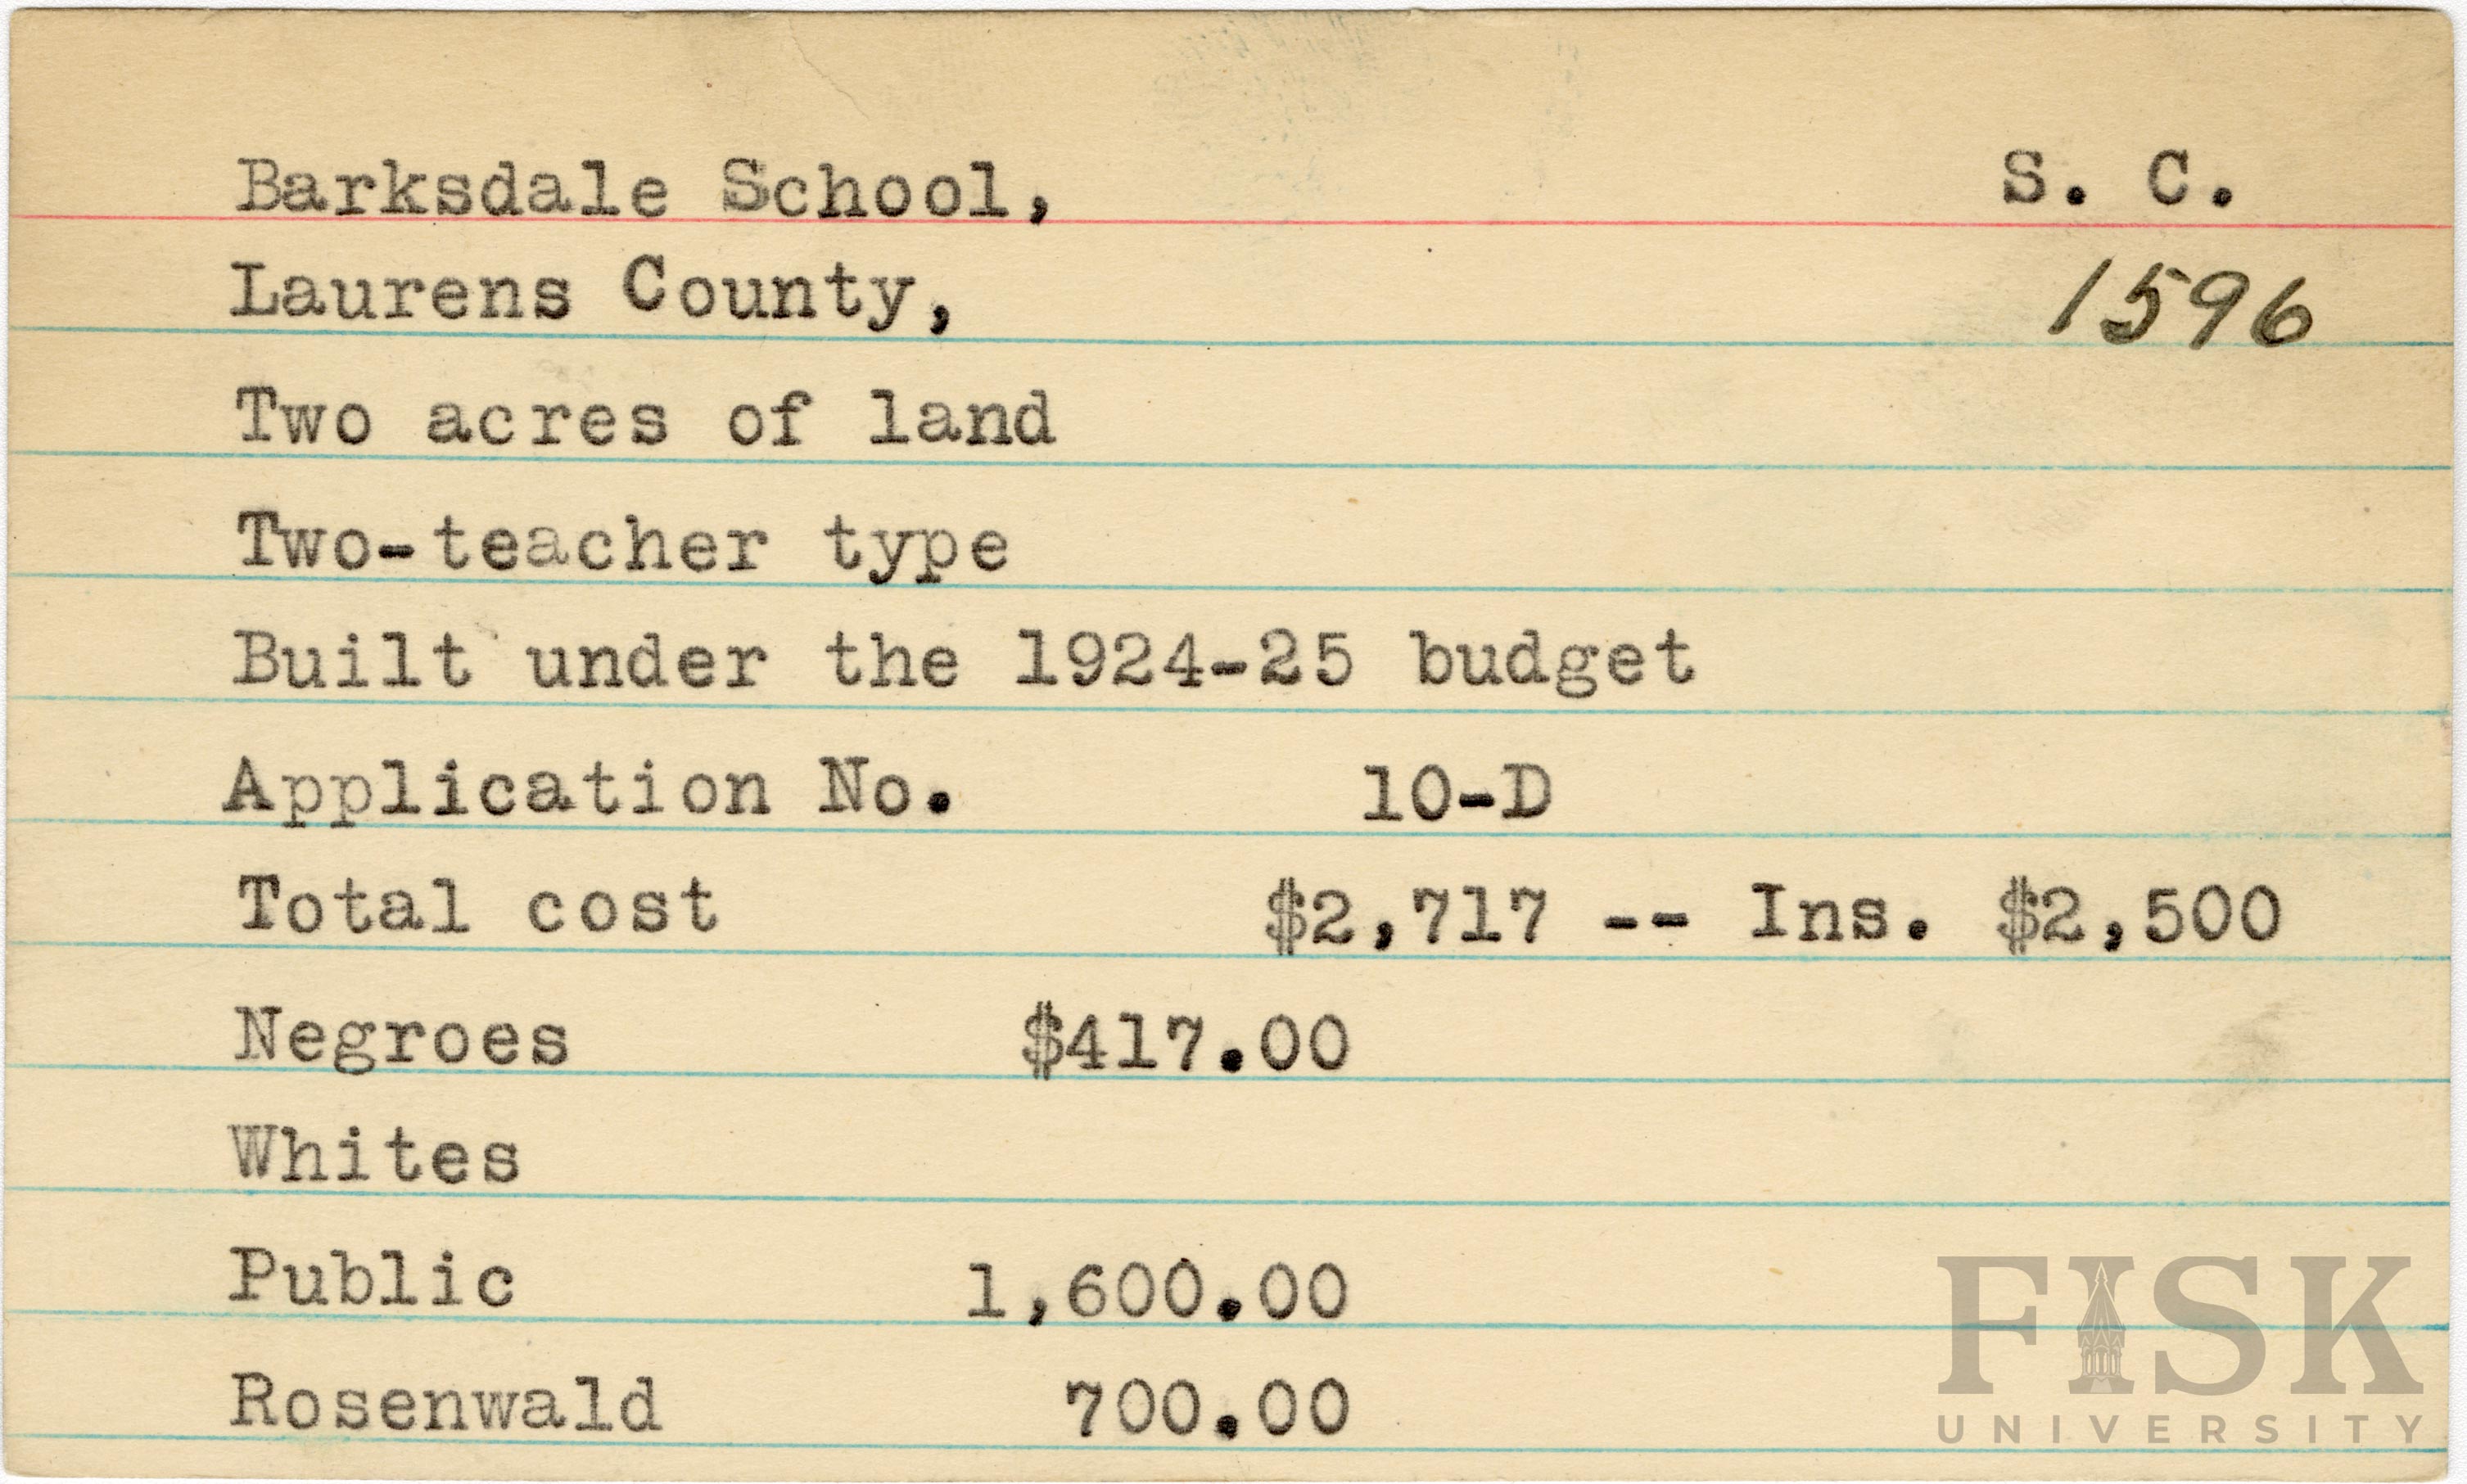 Barksdale School, S. C.
Laurens County, 1596
Two acres of land
Two-teacher type
Built under the 1924-25 budget
Application No. 10-D
Total cost $2,717 -- Ins. $2,500
Negroes $417.00
Whites
Public 1,600.00
Rosenwald 700.00
FISK
UNIVERSITY